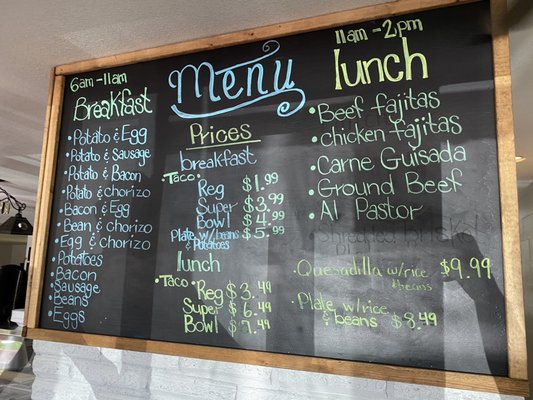 6am-11am
Breakfast
• Potato & Egg
• Potato & Sausage
• Potato & Bacon
• Potato & chorizo
• Bacon & Egg
• Bean & chorizo
• Egg & chorizo
• Potatoes
• Bacon
• Sausage
• Beans
• Eggs
Menu
Prices
breakfast
• Taco:
Reg $1.99
Super $3.99
Bowl $4.99
Plate w/beans $5.99
& Potatoes
lunch
• Taco:
Reg $3.49
Super $6.49
Bowl $7.49
11am-2pm
lunch
• Beef fajitas
• chicken fajitas
• Carne Guisada
• Ground Beef
• Al Pastor
• Quesadilla w/rice $9.99
&beans
• Plate w/rice $8.49
& beans